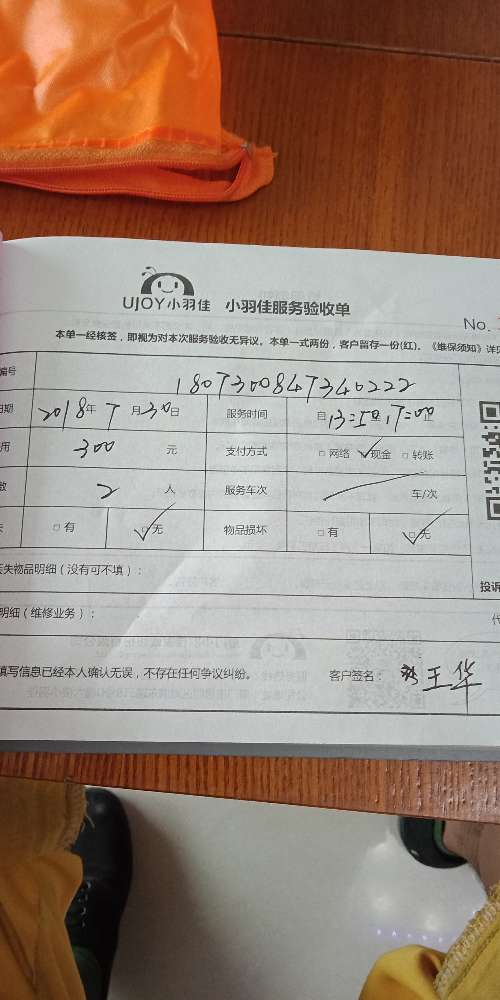 UJOY小羽佳 小羽佳服务验收单
No.
本单一经核签，即视为对本次服务验收无异议。本单一式两份，客户留存一份(红)。《维保须知》详见
编号 1807300847340222
日期 2018年7月30日 服务时间 自13:50 17:00
用 300 元 支付方式 □网络 ☑现金 □转账
数 2 人 服务车次 车/次
失 □有 ☑无 物品损坏 □有 ☑无
丢失物品明细（没有可不填）：
投诉
明细（维修业务）：
代
填写信息已经本人确认无误，不存在任何争议纠纷。 客户签名： 王华